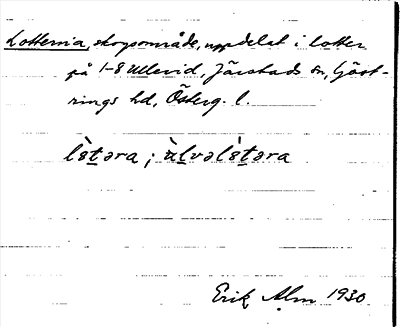 Lotterna, skogsområde, uppdelat i lotter
på 1-8 Ullevid, Järstads sn, Göst-
rings hd, Österg. l.
lȍtəra ; ùlvəlȍtəra
Erik Alm 1930